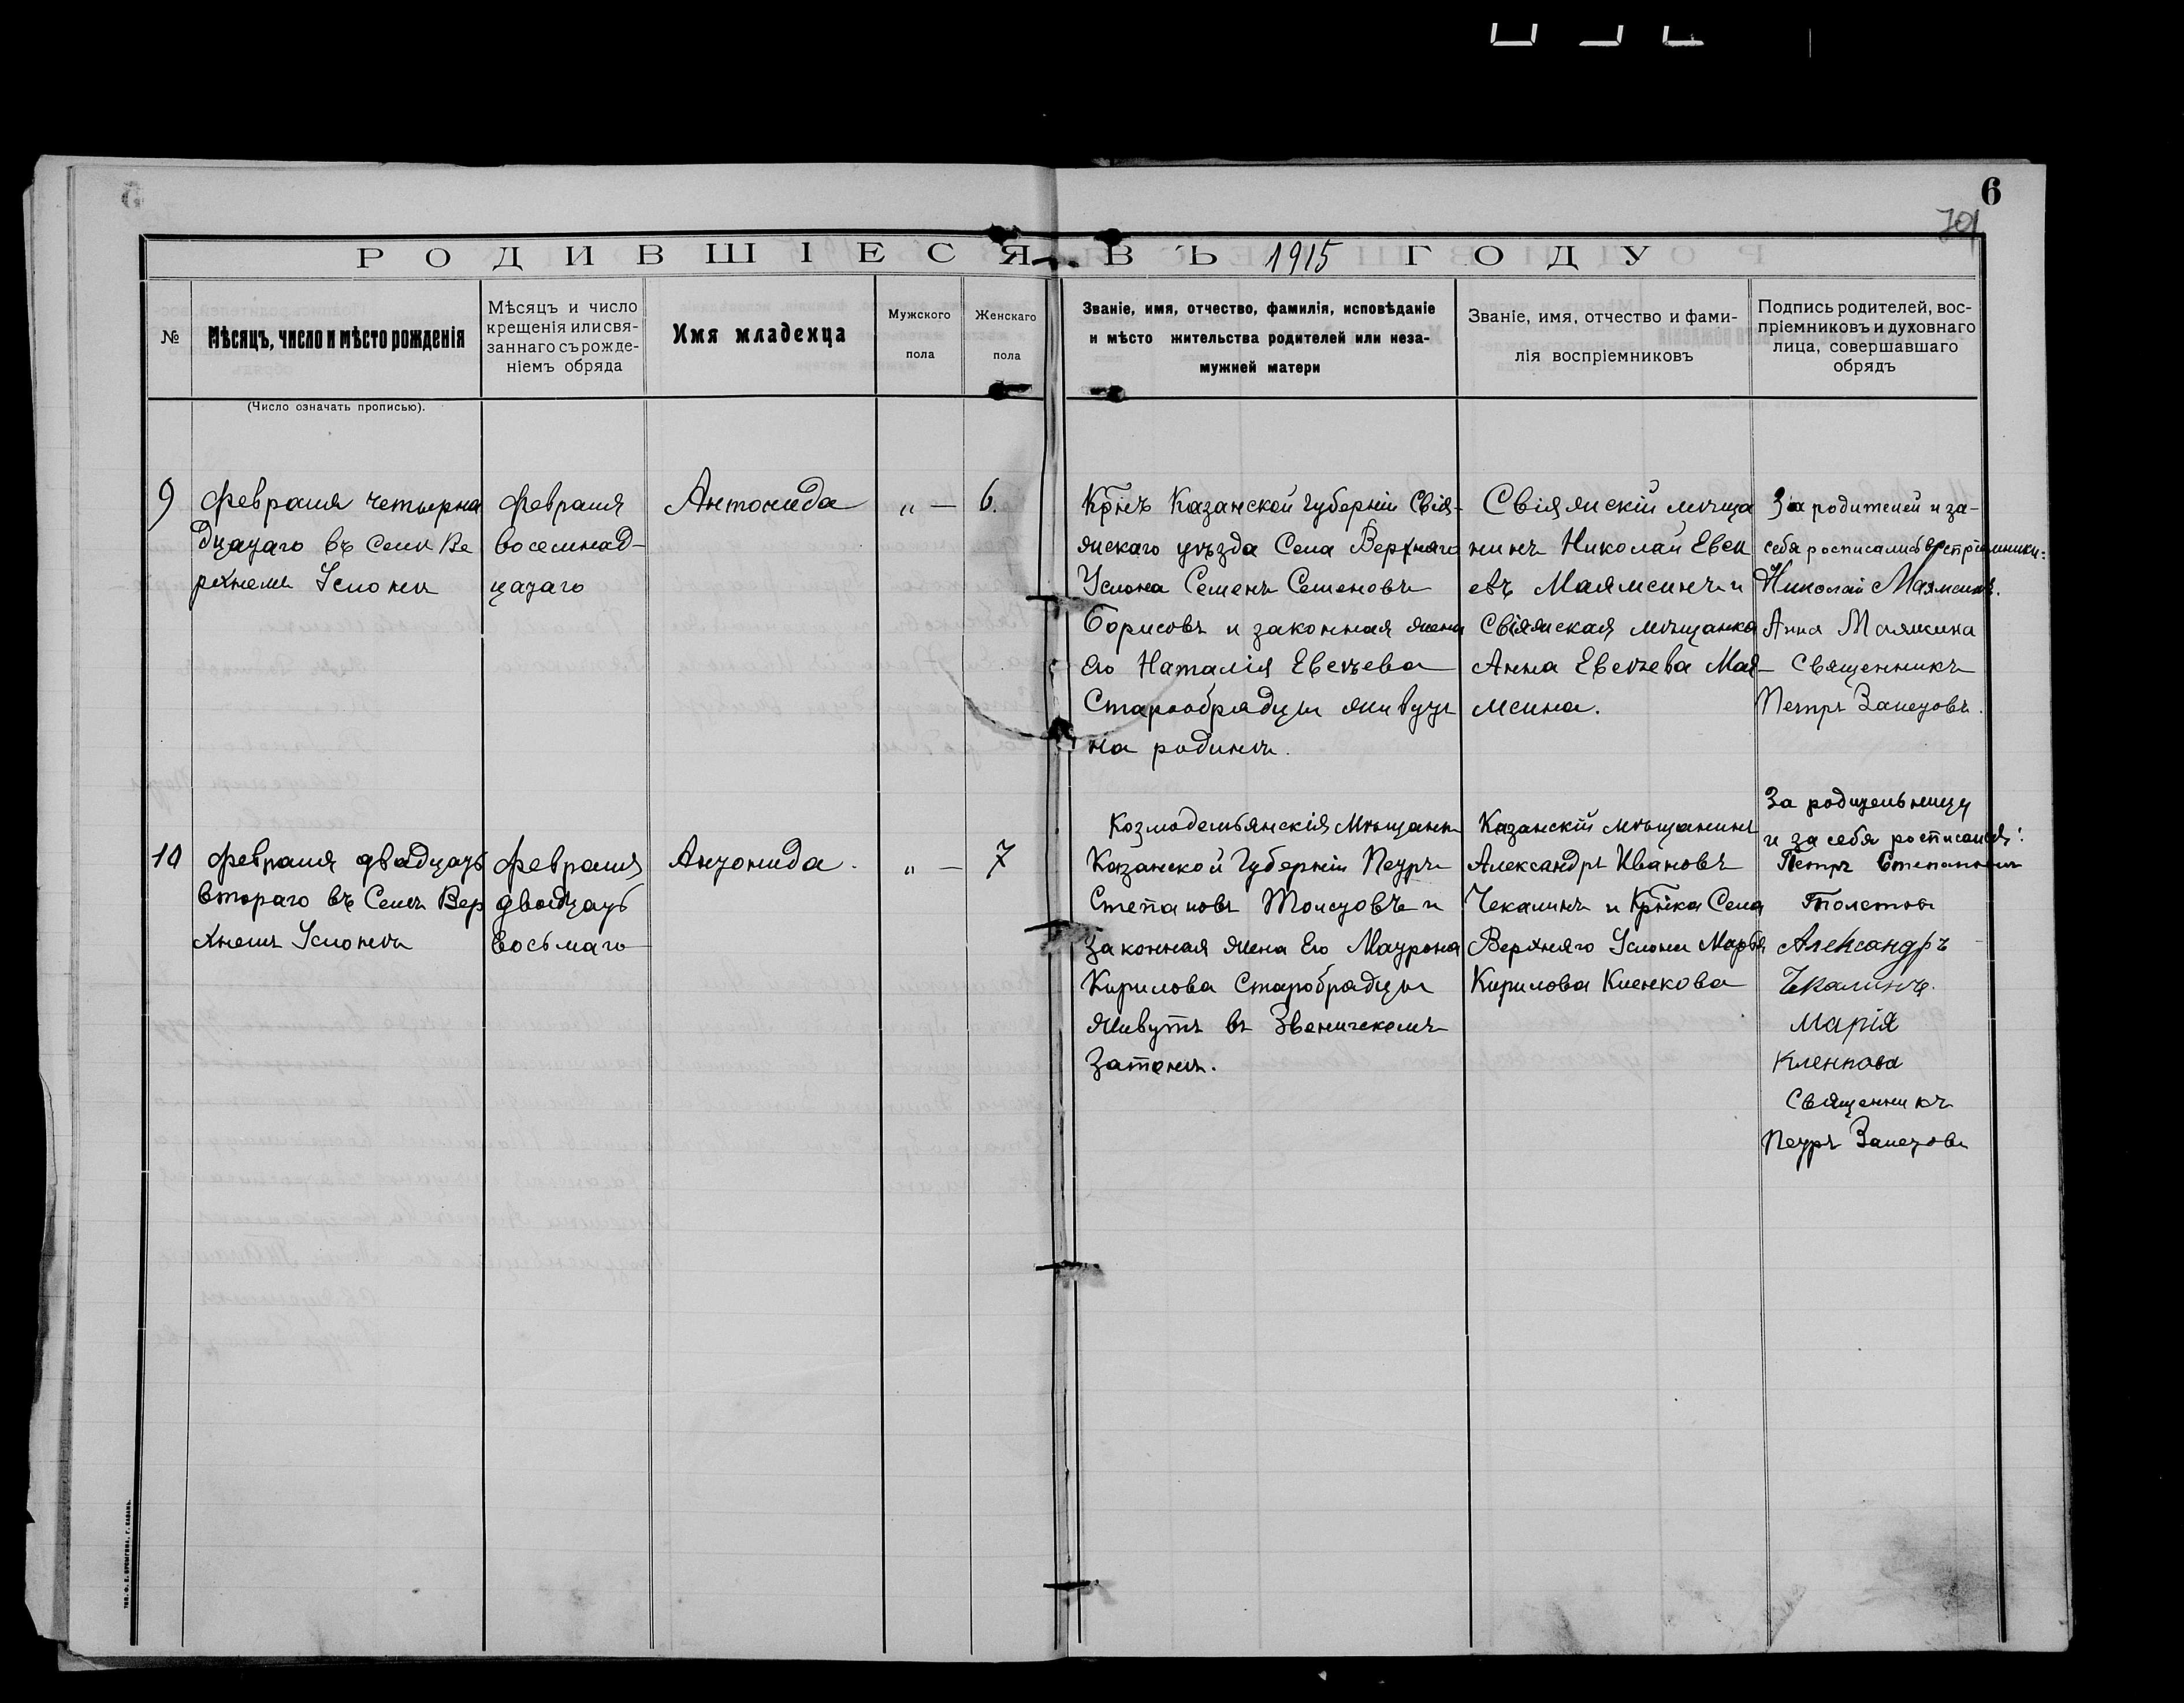 6
РОДИВШІЕСЯ ВЪ 1915 ГОДУ
№
Мѣсяцъ, число и мѣсто рожденія
(Число означать прописью).
Мѣсяцъ и число
крещенія или свя-
заннаго съ рожде-
ніемъ обряда
Имя младенца
Мужского
пола
Женскаго
пола
Званіе, имя, отчество, фамилія, исповѣданіе
и мѣсто жительства родителей или неза-
мужней матери
Званіе, имя, отчество и фами-
лія воспріемниковъ
Подпись родителей, вос-
пріемниковъ и духовнаго
лица, совершавшаго
обрядъ
9
Февраля четырна
дцатаго въ Селѣ Ве
рхнемъ Услонѣ
Февраля
восемнад-
цатаго
Антонида
„ —
6.
Крнъ Казанской Губерніи Свія-
жскаго уѣзда Села Верхняго
Услона Семенъ Семеновъ
Борисовъ и законная жена
его Наталія Евсѣева
Старообрядцы живутъ
на родинѣ.
Свіяжскій мѣща
нинъ Николай Евсѣ
евъ Маямсинъ и
Свіяжская мѣщанка
Анна Евсѣева Мая-
мсина.
За родителей и за-
себя росписались вреспріѣмники:
Николай Маямсинъ.
Анна Маямсина
Священникъ
Петръ Залетовъ.
10
Февраля двадцать
втораго въ Селѣ Вер
хнемъ Услонѣ
Февраля
двадцать
восьмаго
Антонида.
„ —
7
Козмодемьянскія Мѣщанъ
Казанской Губерніи Петръ
Степановъ Толстовъ и
законная жена Его Матрона
Кирилова Старобрядцы
живутъ въ Звенигскомъ
Затонѣ.
Казанскій мѣщанинъ
Александръ Ивановъ
Чекалинъ и Крнка Села
Верхняго Услона Марья
Кирилова Кленкова
За родительницу
и за себя росписался:
Петръ Степановъ
Толстовъ
Александръ
Чкалинъ.
Марія
Кленкова
Священникъ
Петръ Залетовъ